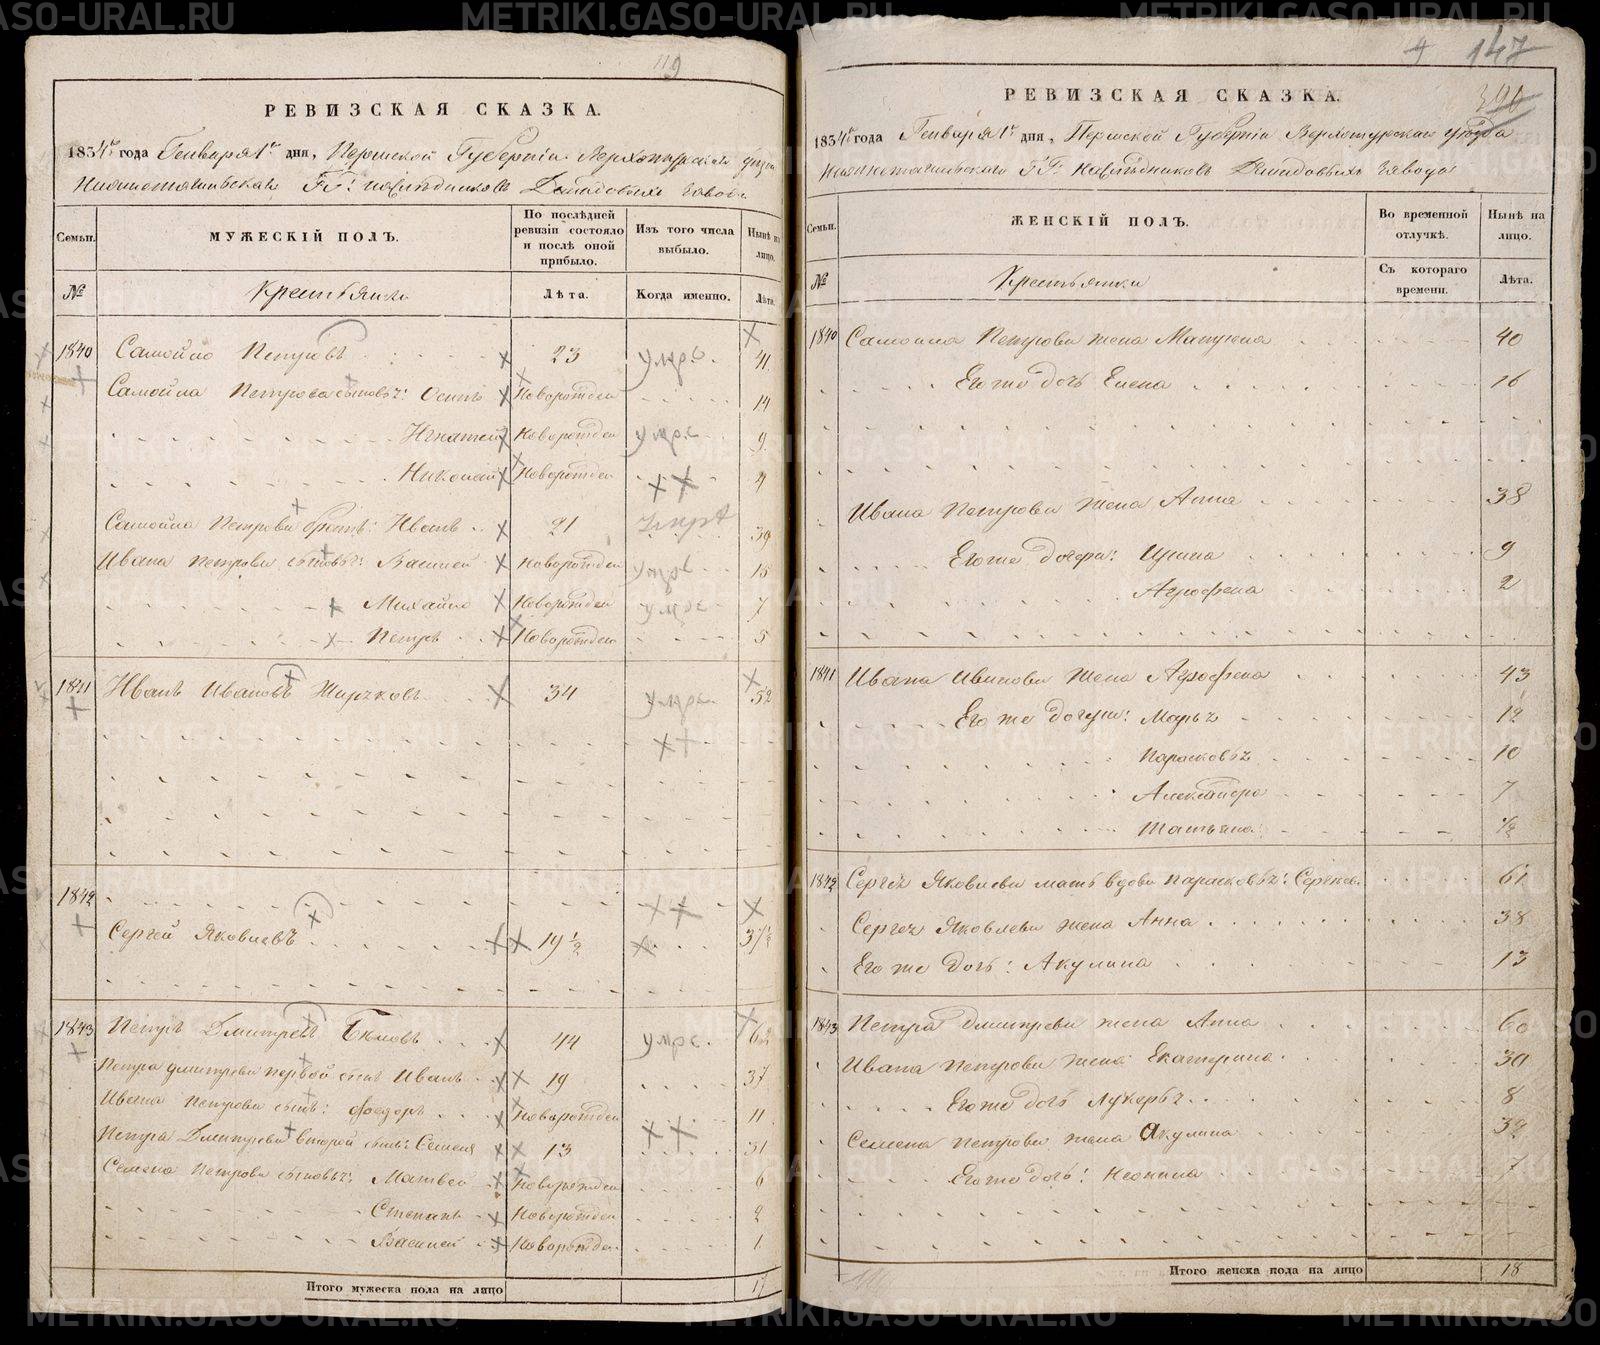 119
РЕВИЗСКАЯ СКАЗКА.
1834го года Генваря 1го дня, Пермской Губерніи Верхотурскаго уѣзда
Нижнетагильскаго ГГ: наслѣдниковъ Демидовыхъ завода
Семьи.
МУЖЕСКІЙ ПОЛЪ.
По послѣдней ревизіи состояло и послѣ оной прибыло.
Изъ того числа выбыло.
Нынѣ на лицо.
№
Крестьяне
Лѣта.
Когда именно.
Лѣта.
1840 Самойло Петровъ 23 умре. 41
Самойла Петрова сыновья: Осипъ Новорожден 14
Игнатей Новорожден умре 9
Николай Новорожден 4
Самойла Петрова братъ: Иванъ 21 39
Ивана Петрова сыновья: Василей Новорожден умре 15
Михайло Новорожден умре 7
Петръ Новорожден 5
1841 Иванъ Ивановъ Жирчковъ 34 умре. 52
1842
Сергей Яковлевъ 19 1/2 37 1/2
1843 Петръ Дмитревъ 44 умре. 62
Петра Дмитрева первой сынъ Иванъ 19 37
Ивана Петрова сынъ: Федоръ Новорожден 11
Петра Дмитрева второй сынъ: Семенъ 13 31
Семена Петрова сыновья: Матвей Новорожден 6
Степанъ Новорожден 2
Василей Новорожден 1
Итого мужеска пола на лицо 17
4 147
390
РЕВИЗСКАЯ СКАЗКА.
1834го года Генваря 1го дня, Пермской Губерніи Верхотурскаго уѣзда
Нижнетагильскаго ГГ: Наслѣдниковъ Демидовыхъ завода
Семьи.
ЖЕНСКІЙ ПОЛЪ.
Во временной отлучкѣ.
Нынѣ на лицо.
№
Крестьянки
Съ котораго времени.
Лѣта.
1840 Самойла Петрова жена Матрена 40
Его же дочь Елена 16
Ивана Петрова жена Анна 38
Его же дочери: Ирина 9
Агрофена 2
1841 Ивана Иванова жена Агрофена 43
Его же дочери: Марья 12
Парасковья 10
Александра 7
Татьяна 1/2
1842 Сергея Яковлева мать вдова Парасковья: Сергеева 61
Сергея Яковлева жена Анна 38
Его же дочь: Акулина 13
1843 Петра Дмитрева жена Анна 60
Ивана Петрова жена Екатерина 39
Его же дочь Лукерья 8
Семена Петрова жена Акулина 32
Его же дочь: Неонила 7
Итого женска пола на лицо 18
METRIKI.GASO-URAL.RU